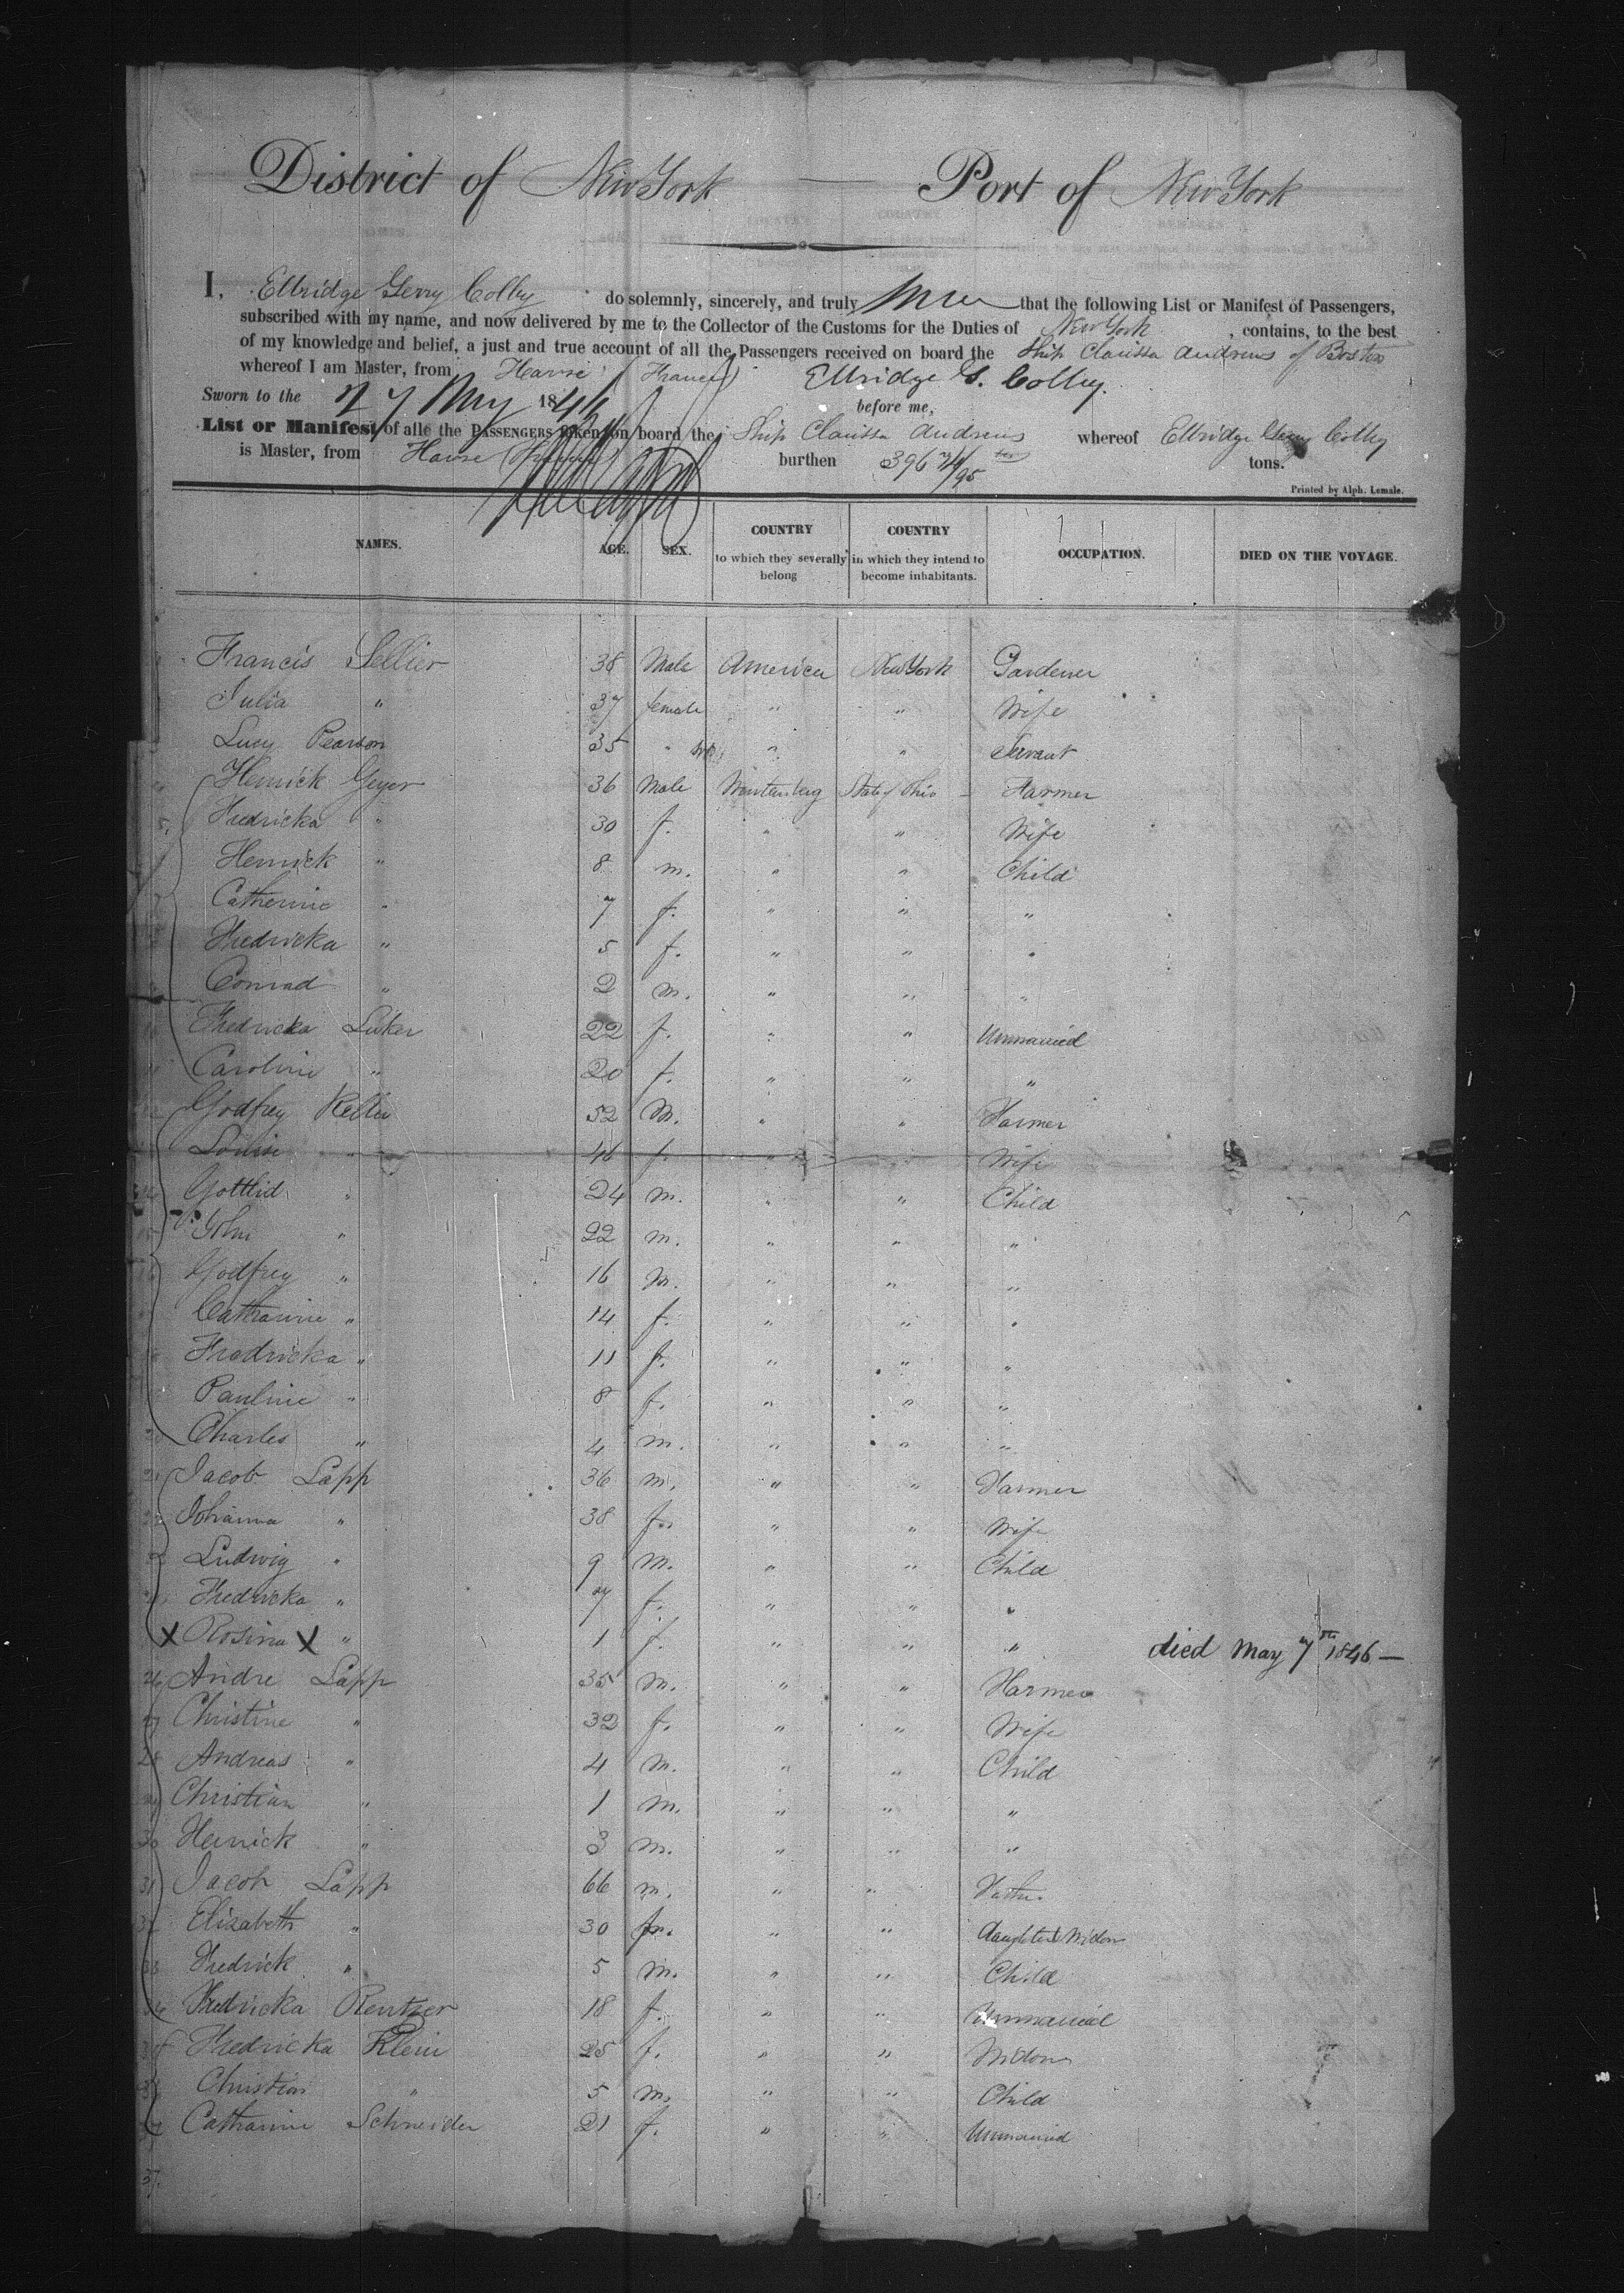 District of New York Port of New York
I, Elbridge Gerry Colby do solemnly, sincerely, and truly that the following List or Manifest of Passengers,
subscribed with my name, and now delivered by me to the Collector of the Customs for the Duties of New York , contains, to the best
of my knowledge and belief, a just and true account of all the Passengers received on board the Ship Clarissa Andrews of Boston
whereof I am Master, from Havre (France) Elbridge G. Colby.
Sworn to the 27 May 1846 before me,
List or Manifest of alle the PASSENGERS taken on board the Ship Clarissa Andrews whereof Elbridge Gerry Colby
is Master, from Havre (France) burthen 396 tons.
Printed by Alph. Lemale.
NAMES. AGE. SEX. COUNTRY to which they severally belong COUNTRY in which they intend to become inhabitants. OCCUPATION. DIED ON THE VOYAGE.
Francis Sellier 38 Male America New York Gardener
Julia " 37 female " " Wife
Lucy Pearson 35 " " " Servant
Henrick Geyer 36 Male Wurtenberg State of Ohio Farmer
5 Fredricka " 30 f. " " Wife
Henrick " 8 m. " " Child
Catherine " 7 f. " " "
Fredricka " 5 f. " " "
Conrad " 2 m. " " "
Fredricka Luker 22 f. " " Unmarried
Caroline " 20 f. " " "
Godfrey Keller 52 M. " " Farmer
Louise " 46 f. " " Wife
Gottlid " 24 m. " " Child
John " 22 m. " " "
Godfrey " 16 m. " " "
Catharine " 14 f. " " "
Fradricka " 11 f. " " "
Pauline " 8 f. " " "
20 Charles " 4 m. " " "
21 Jacob Lapp 36 m. " " Farmer
22 Johanna " 38 f. " " Wife
Ludwig " 9 m. " " Child
Fredricka " 7 f. " " "
X Rosina X " 1 f. " " " died May 7th 1846 —
26 Andre Lapp 35 m. " " Farmer
27 Christine " 32 f. " " Wife
28 Andreas " 4 m. " " Child
29 Christian " 1 m. " " "
30 Henrick " 3 m. " " "
31 Jacob Lapp 66 m. " " Father
32 Elizabeth " 30 f. " " daughter Widow
33 Fredrick " 5 m. " " Child
34 Fredricka Rentzer 18 f. " " Unmarried
35 Fredricka Klein 25 f. " " Widow
Christian " 5 m. " " Child
Catharine Schneider 21 f. " " Unmarried
37.